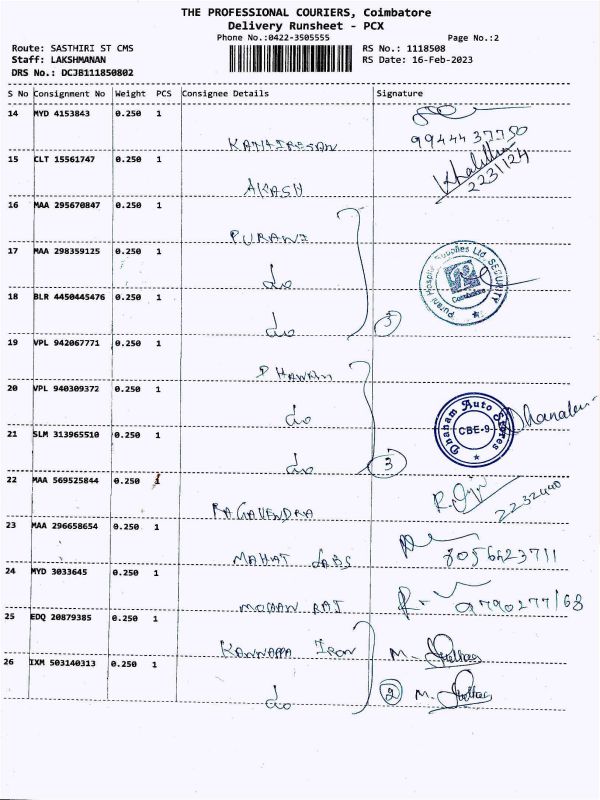 THE PROFESSIONAL COURIERS, Coimbatore
Delivery Runsheet - PCX
Phone No.:0422-3505555 Page No.:2
Route: SASTHIRI ST CMS RS No.: 1118508
Staff: LAKSHMANAN RS Date: 16-Feb-2023
DRS No.: DCJB111850802
S No Consignment No Weight PCS Consignee Details Signature
14 MYD 4153843 0.250 1
KATHIRESAN 9944437750
15 CLT 15561747 0.250 1
AKASH 2231124
16 MAA 295670847 0.250 1
PURANI
17 MAA 298359125 0.250 1
do
Purani Hospital Supplies Ltd SECURITY
Coimbatore
18 BLR 4450445476 0.250 1
do 3
19 VPL 942067771 0.250 1
DHANAM
20 VPL 940309372 0.250 1
do
Dhanam Auto Stores
CBE-9
21 SLM 313965510 0.250 1
do 3
22 MAA 569525844 0.250 1
RAGAVENDRA 2232440
23 MAA 296658654 0.250 1
MAHAT LABS 8056423711
24 MYD 3033645 0.250 1
MOHAN RAJ 9790277168
25 EDQ 20879385 0.250 1
KANNAPPA IRON M.
26 IXM 503140313 0.250 1
do 2 M.